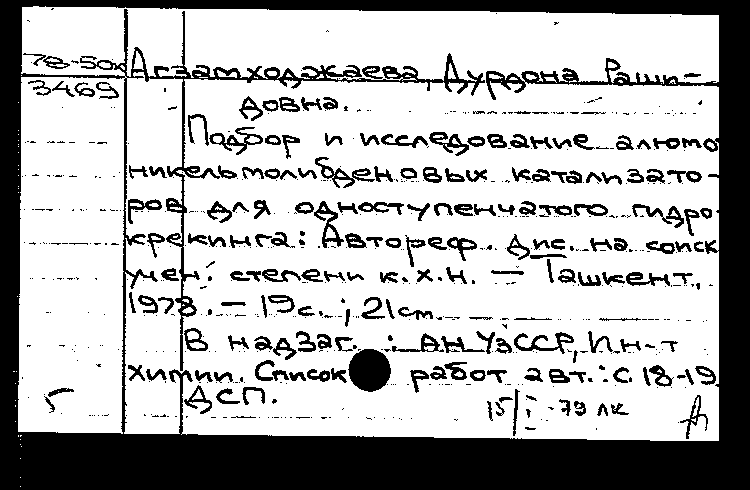 78-50к Агзамходжаева, Дурдона Раши-
3469
довна.
Подбор и исследование алюмо
никельмолибденовых катализато-
ров для одноступенчатого гидро-
крекинга: Автореф. дис. на соиск
учен. степени к.х.н. — Ташкент,
1978. — 19 с. ; 21 см.
В надзаг. : АН УзССР, Ин-т
химии. Список работ авт.: с. 18-19.
ДСП.
15/I-79 лк